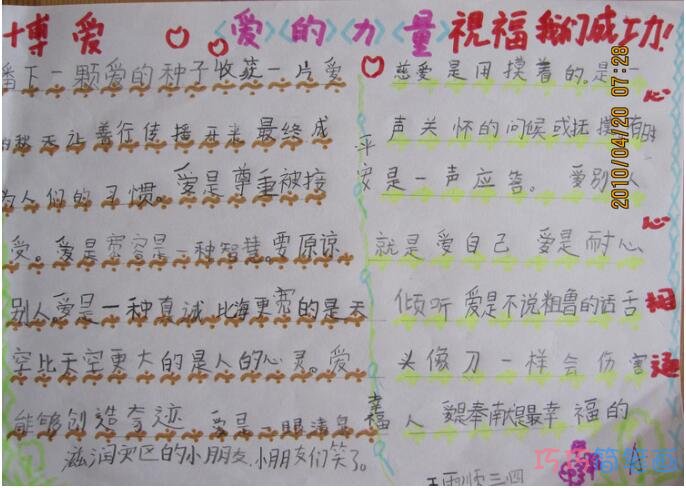 博爱 《爱的力量》 祝福我们成功!
播下一颗爱的种子收获一片爱
的秋天让善行传播开来最终成
为人们的习惯。爱是尊重被接
受。爱是宽容是一种智慧。要原谅
别人爱是一种真诚比海更宽的是天
空比天空更大的是人的心灵。爱
能够创造奇迹 爱是一眼清泉
滋润灾区的小朋友,小朋友们笑了。
平安
幸福
慈爱是用摸着的。是一
声关怀的问候或抚摸有时
是一声应答。 爱别人
就是爱自己 爱是耐心
倾听 爱是不说粗鲁的话舌
头像刀一样会伤害
人 爱是奉献是最幸福的
心
心
相
通
2010/04/20 07:28
巧巧简笔画